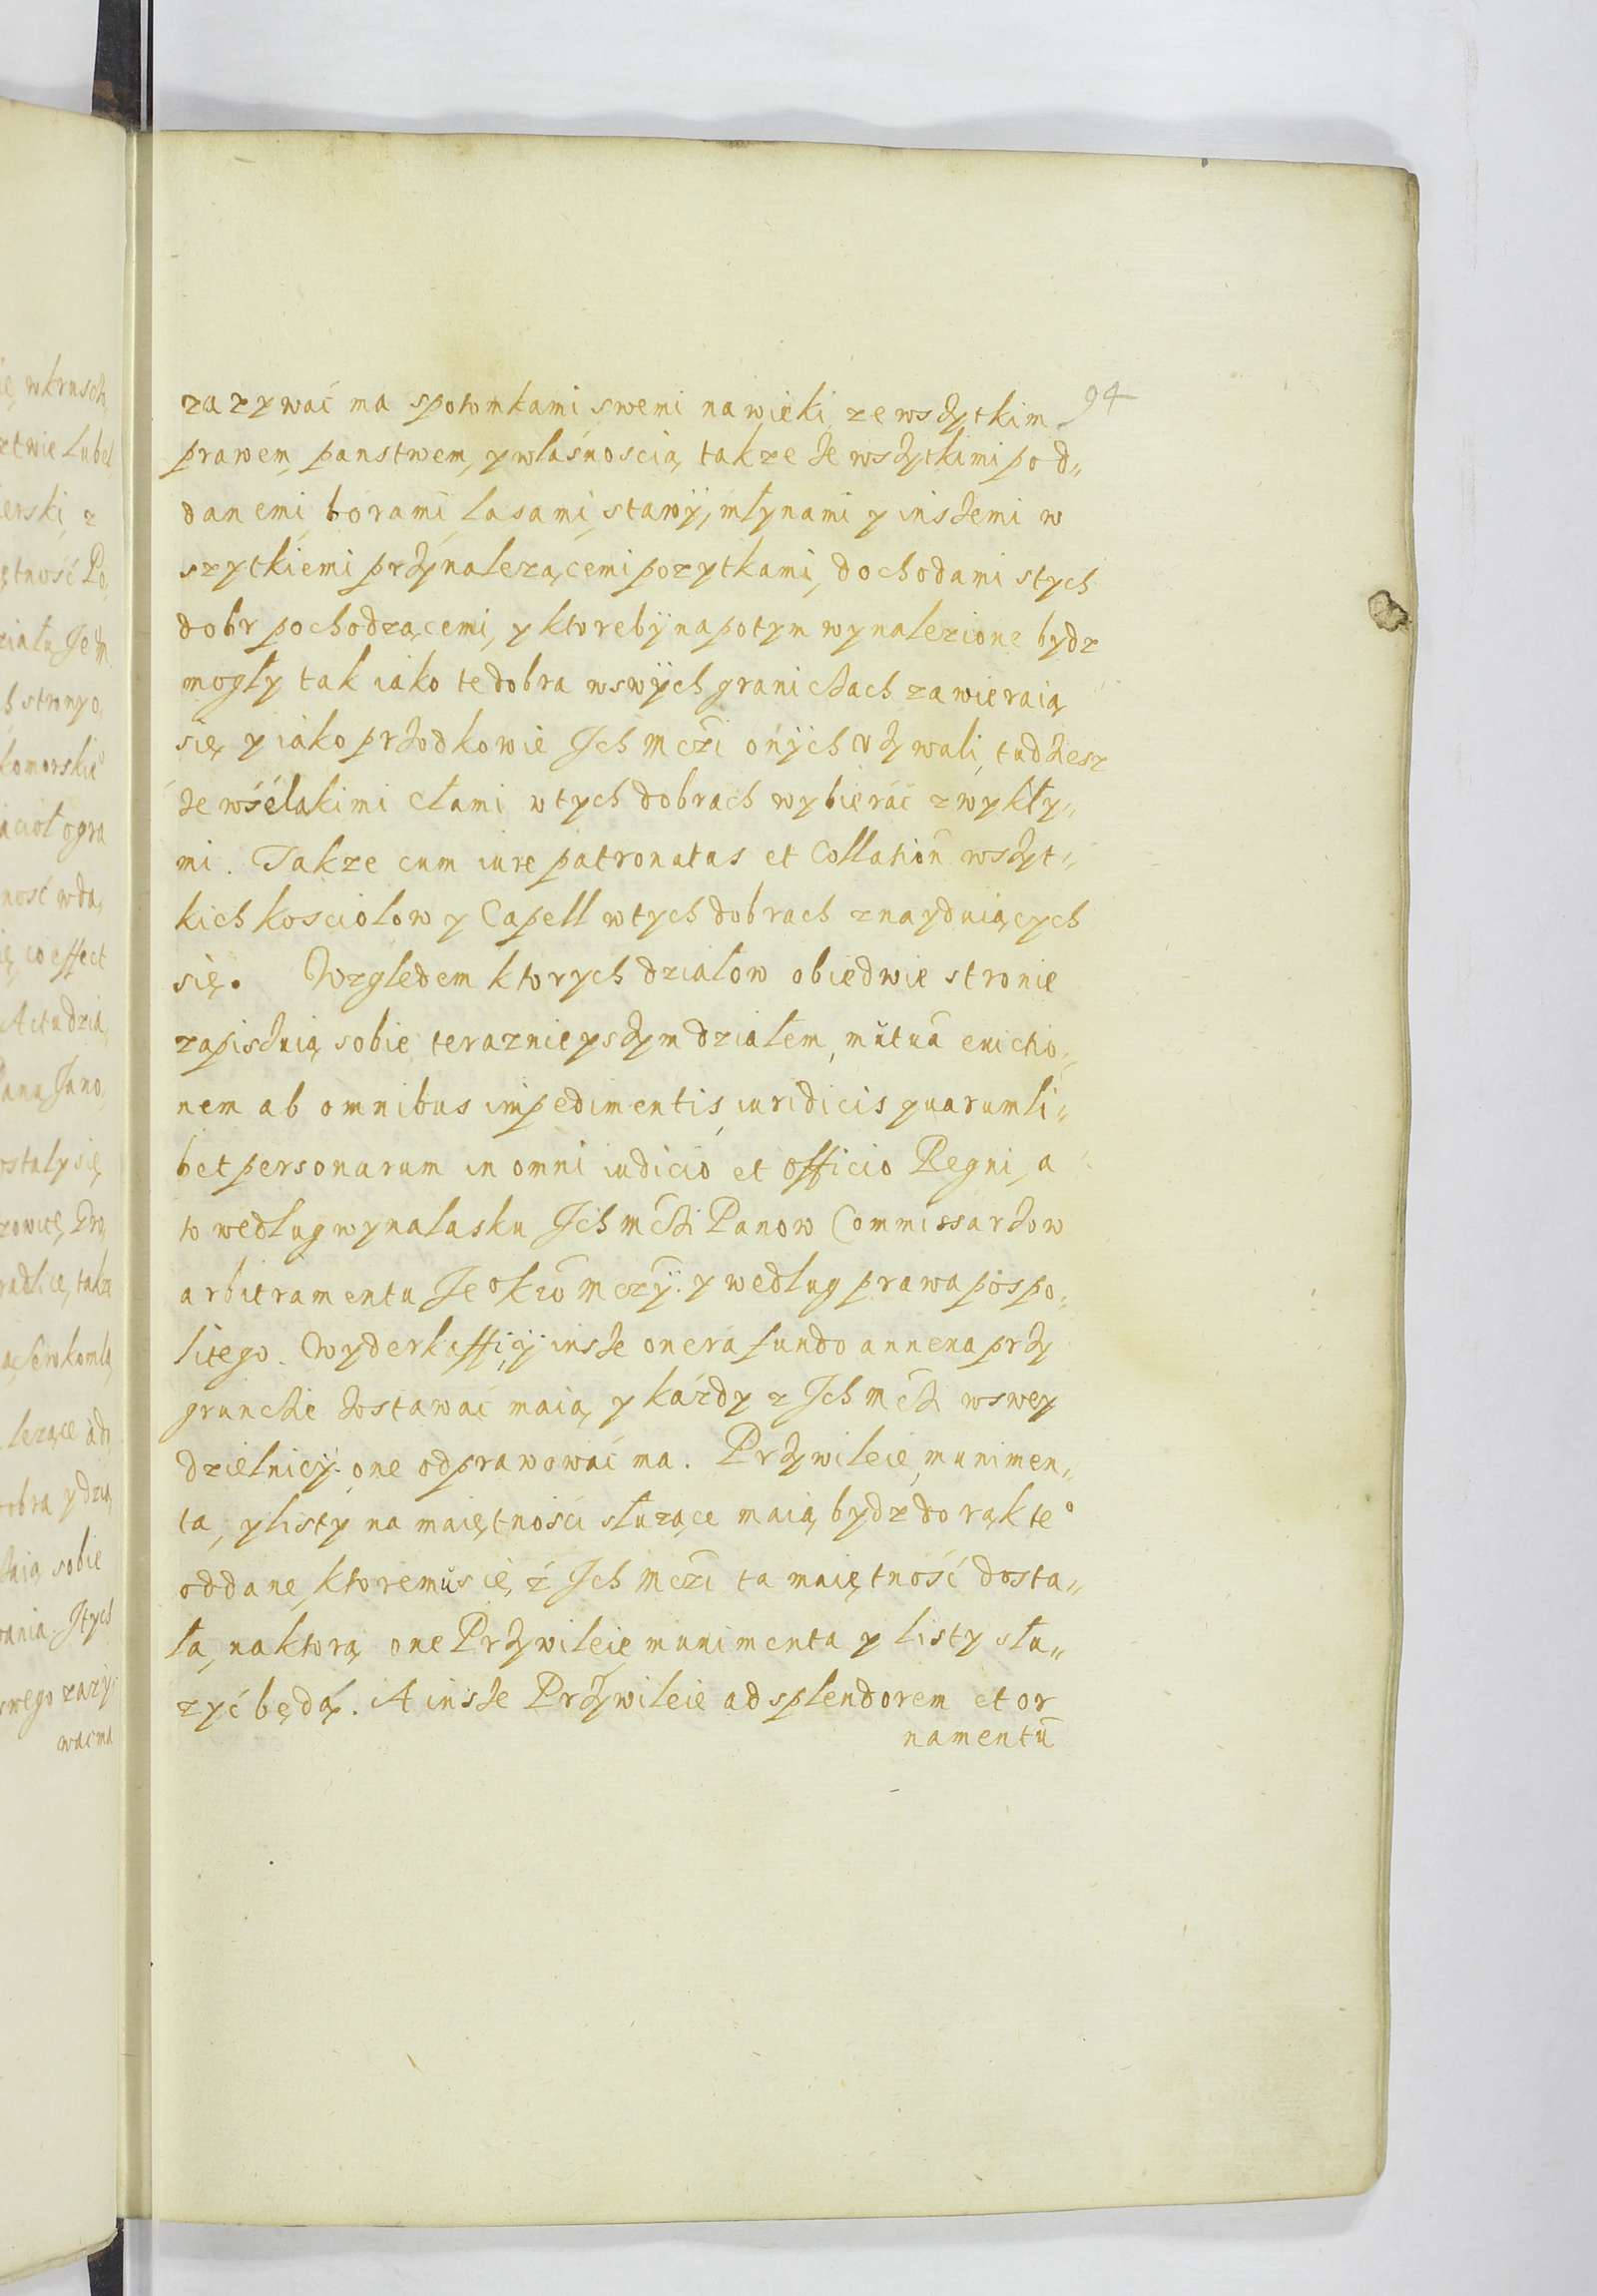 94
zazywać ma spotomkami swemi nawieki, zewszytkim
prawem, panstwem, y własnoscią, takze ze wszytkimi pod„
danemi, borami, lasami, stawÿ, młynami y inszemi w
szytkiemi przynalezącemi pozytkami, dochodami stych
dobr pochodzącemi, y ktorebÿ napotym wynalezione bydz
mogły tak iako te dobra wswÿch granicach zawieraią
się, y iako przodkowie Jch Mczi onÿch vzywali, tudziesz
ze wśelakimi cłami wtych dobrach wybierać zwykły„
mi. Takze cum iure patronatus et Collation wszyt„
kich kosciolow y Capell wtych dobrach znayduiących
się. Wzgledem ktorych działow obiedwie stronie
zapiszuią sobie teraznieyszym działem, mutua euictio„
nem ab omnibus impedimentis iuridicis quarumli„
bet personarum in omni iudicio et officio Regni, a
to według wynalasku Jch Mczi Panow Commissarzow
arbitramentu Je° kro Mczÿ. y według prawa pospo„
litego. Wyderkaffiÿ insze onera fundo annena przy
gruncie zostawać maią, y każdy z Jch Mcz wswey
dzielnicÿ. one odprawować ma. Przywileie, munimen„
ta, y listy na maiętności służące maią bydz do rąk te°
oddane, ktoremu się, z Jch Mczi ta maiętność dosta„
ła, naktorą one Przywileie munimenta y listy słu„
zyć będą. A insze Przywileie ad splendorem et or
namentū